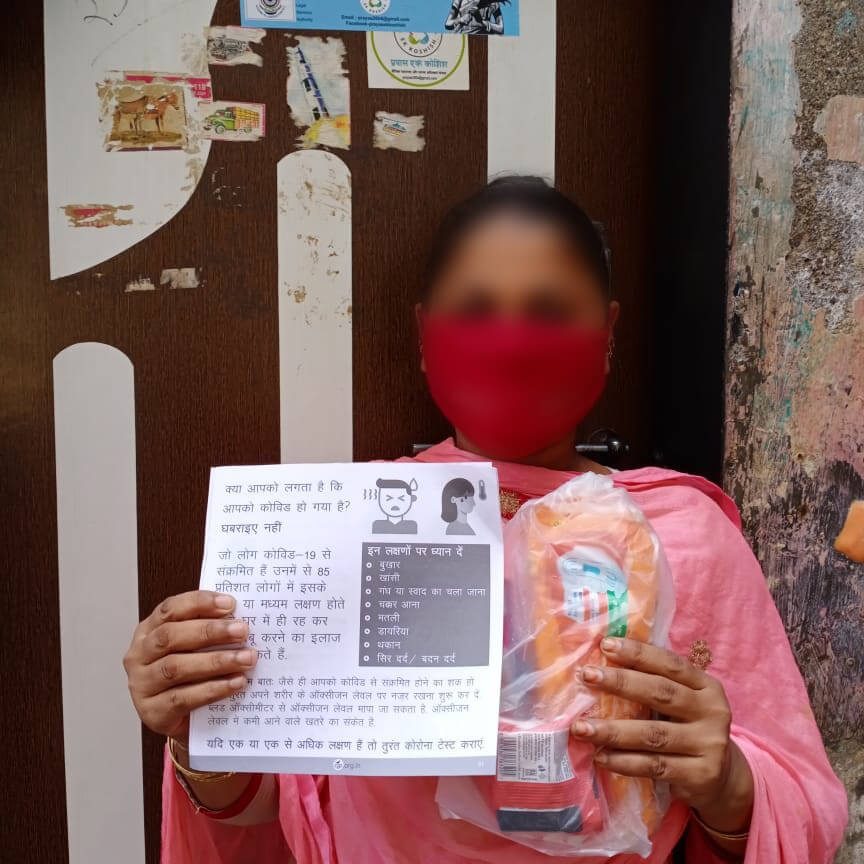 Legal
Services
Authority
Email : prayas2604@gmail.com
EK KOSHISH
प्रयास एक कोशिश
क्या आपको लगता है कि
आपको कोविड हो गया है?
घबराइए नहीं
जो लोग कोविड–19 से
संक्रमित हैं उनमें से 85
प्रतिशत लोगों में इसके
या मध्यम लक्षण होते
घर में ही रह कर
करने का इलाज
कते हैं.
इन लक्षणों पर ध्यान दें
बुखार
खांसी
गंध या स्वाद का चला जाना
चक्कर आना
मतली
डायरिया
थकान
सिर दर्द/ बदन दर्द
बातः जैसे ही आपको कोविड से संक्रमित होने का शक हो
तुरंत अपने शरीर के ऑक्सीजन लेवल पर नजर रखना शुरू कर दें
ब्लड ऑक्सीमीटर से ऑक्सीजन लेवल मापा जा सकता है. ऑक्सीजन
लेवल में कमी आने वाले खतरे का संकेत है.
यदि एक या एक से अधिक लक्षण हैं तो तुरंत कोरोना टेस्ट कराएं.
org.in